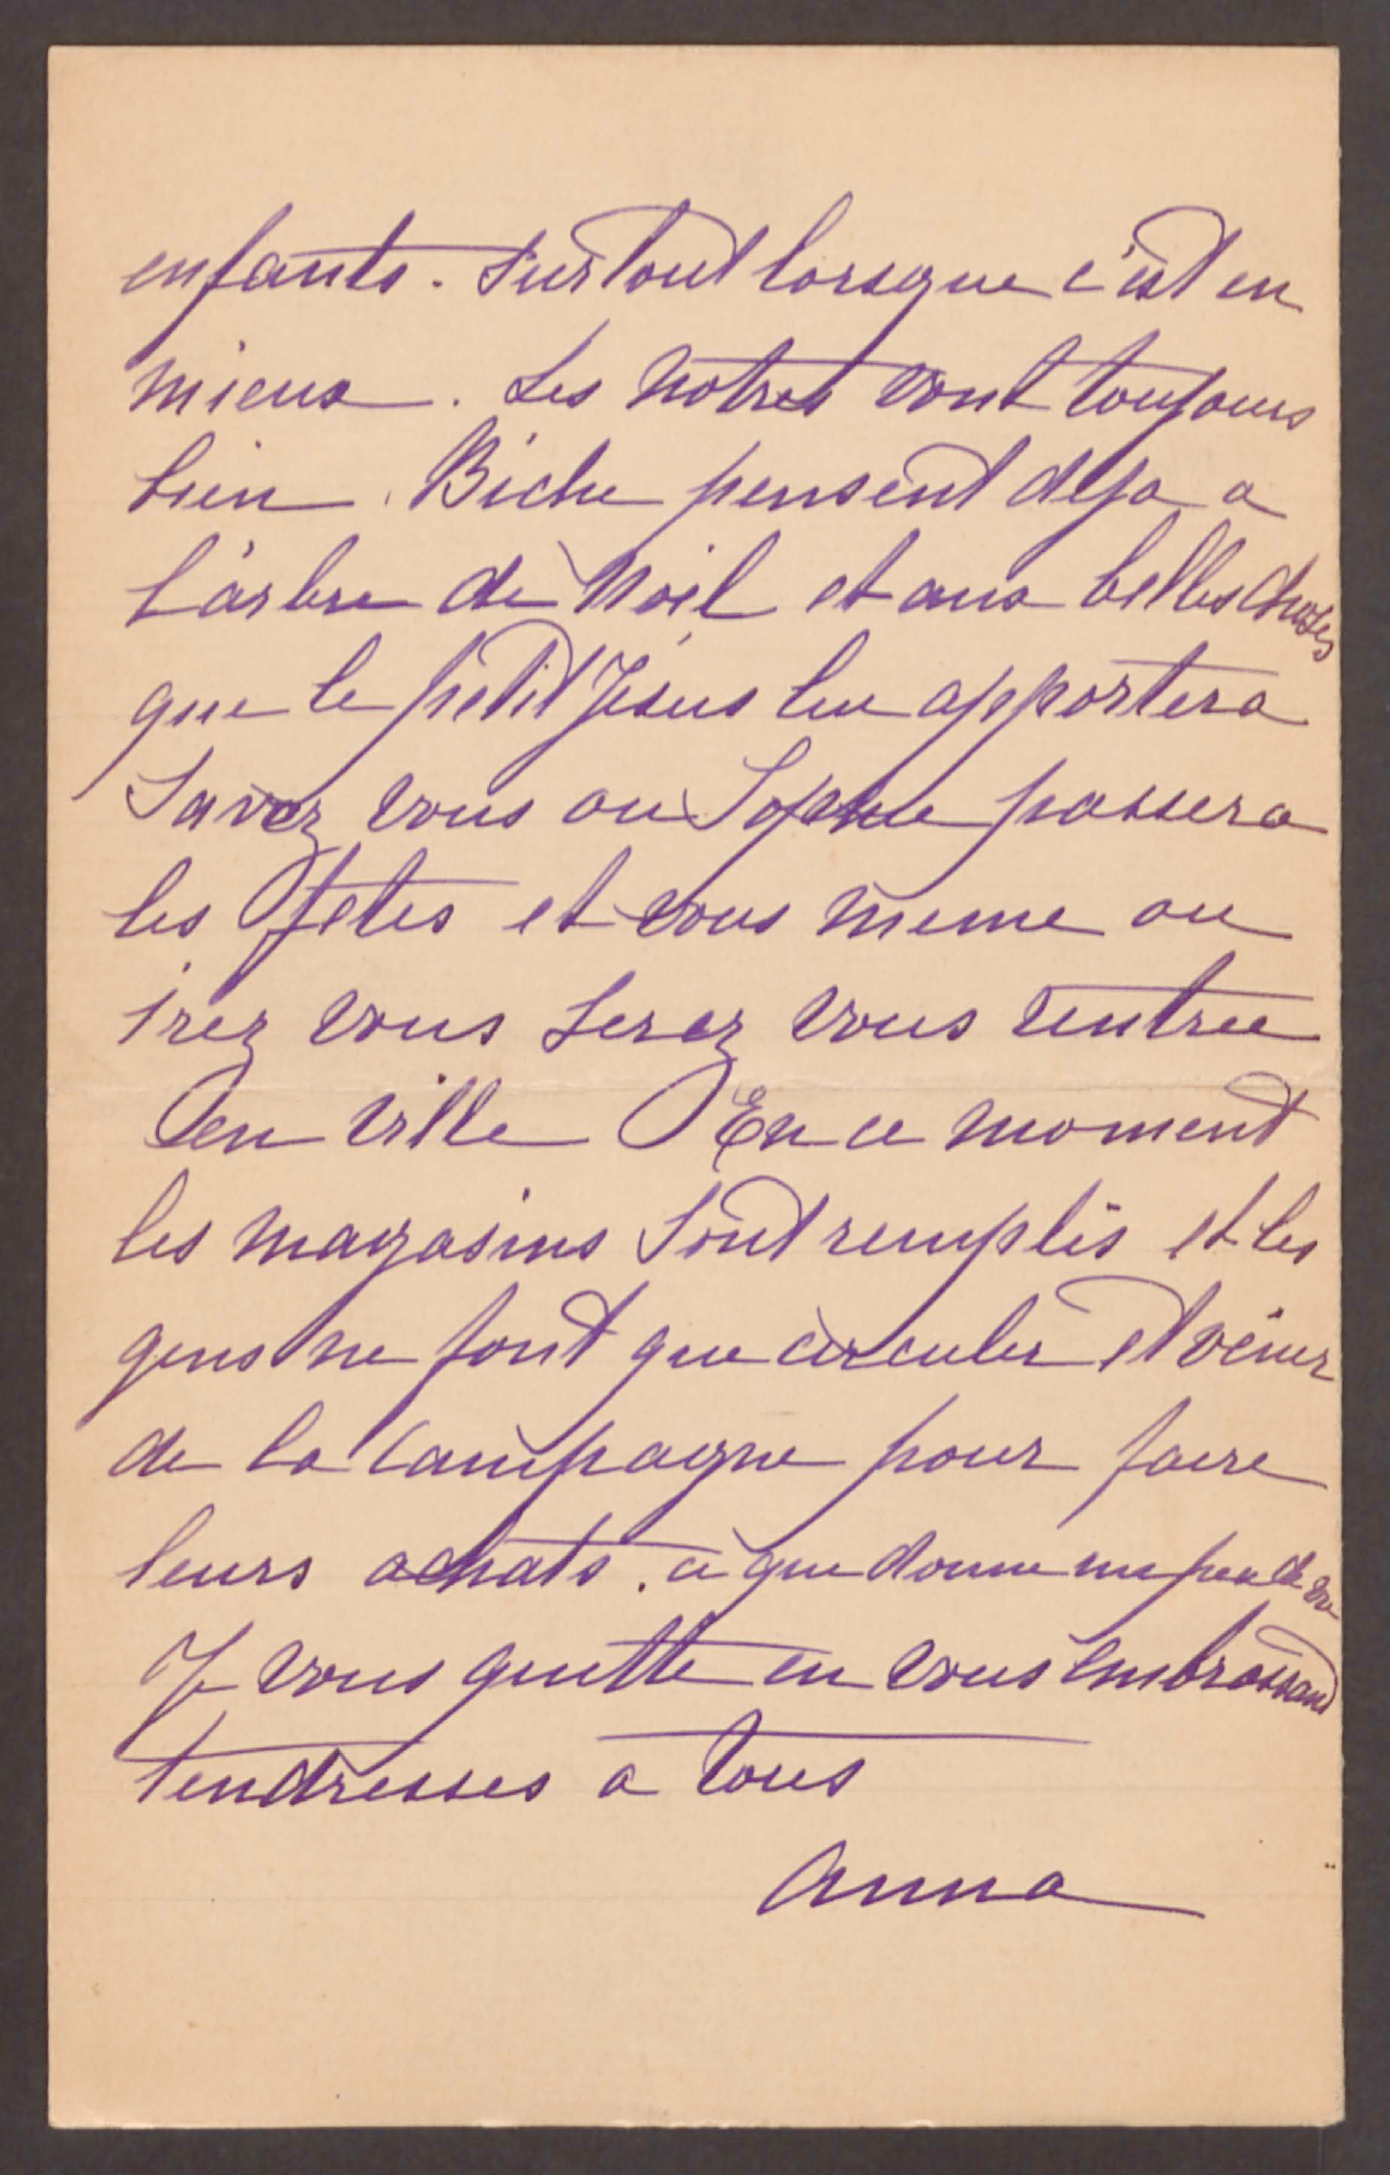 enfants. Surtout lorsque c'est en
mieux. Les notres vont toujours
bien. Biche pensent deja a
l'arbre de Noël et aux belles choses
que le petit Jésus lui apportera
Savez vous ou Sophie passera
les fetes et vous meme ou
irez vous serez vous rentree
en ville En ce moment
les magasins sont remplis et les
gens ne font que circuler et venir
de la campagne pour faire
leurs achats. ce que donne un peu de vie
Je vous quitte en vous embrassant
tendresses a tous
Anna